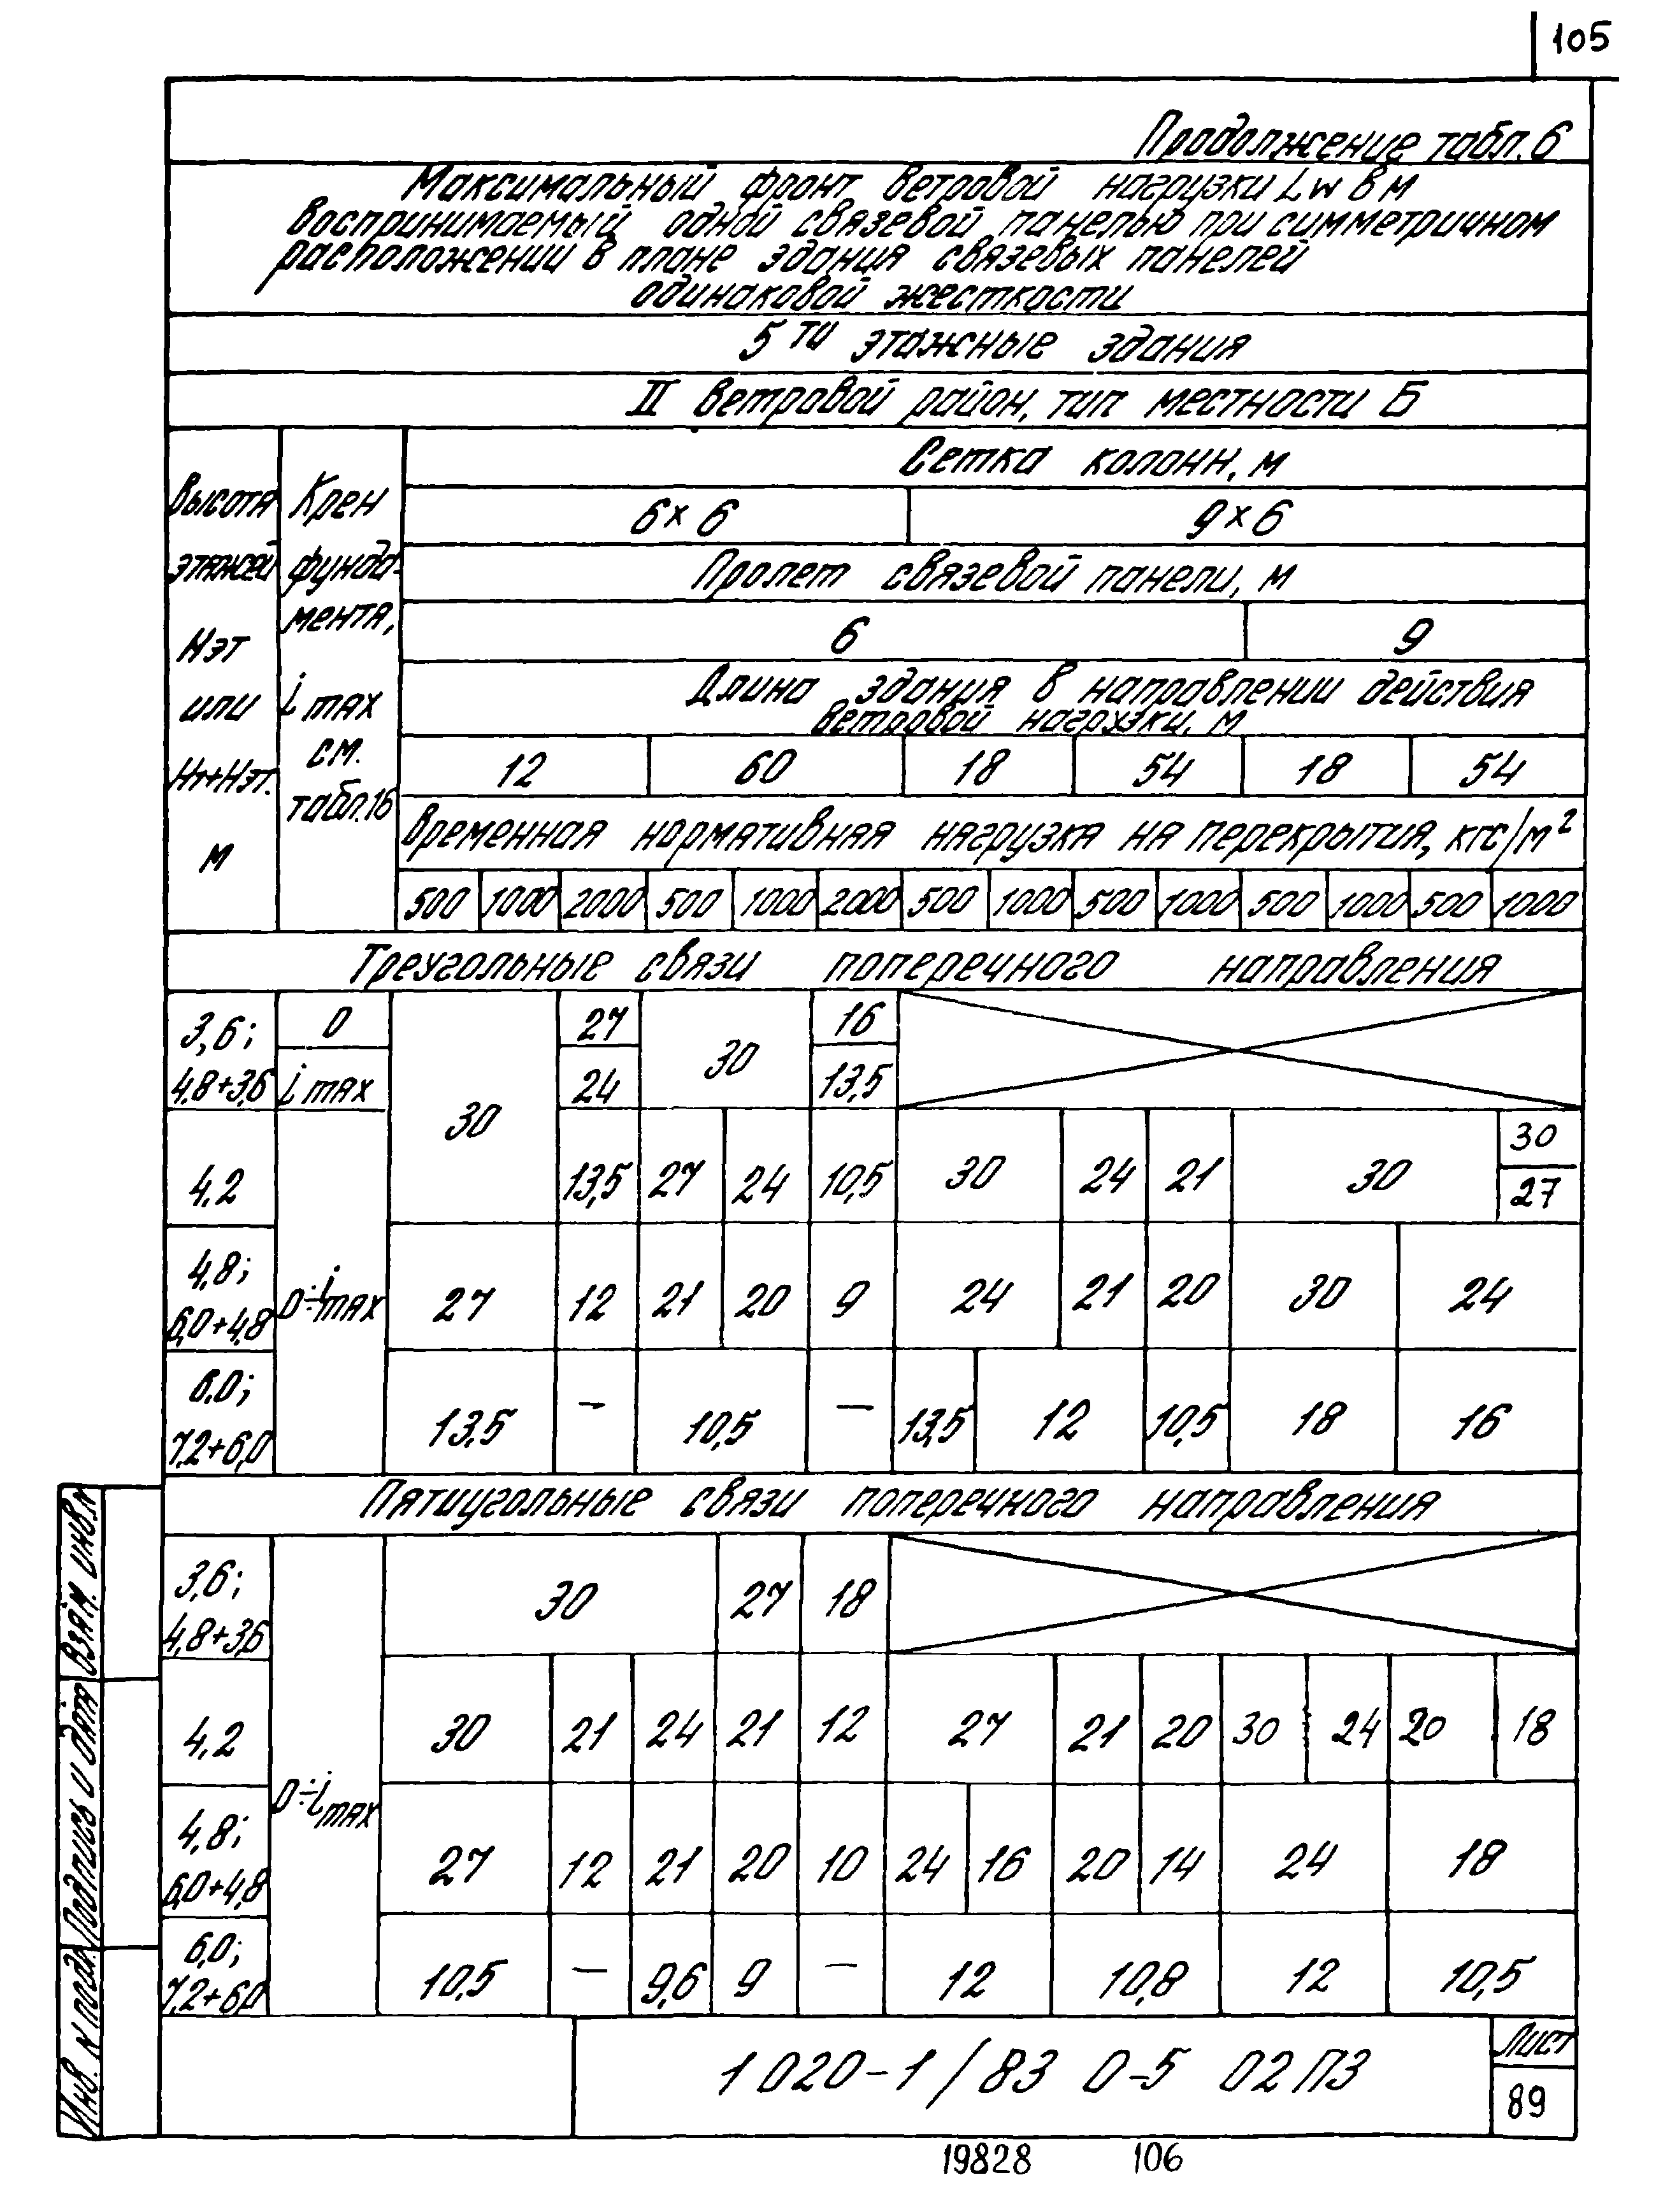 105
Продолжение табл. 6
Максимальный фронт ветровой нагрузки Lw в м
воспринимаемый одной связевой панелью при симметричном
расположении в плане здания связевых панелей
одинаковой жесткости
5ти этажные здания
II ветровой район, тип местности Б
Высота этажей Нэт или Нт+Нэт. м
Крен фунда-мента, i max см. табл.16
Сетка колонн, м
6×6 9×6
Пролет связевой панели, м
6 9
Длина здания в направлении действия
ветровой нагрузки, м
12 60 18 54 18 54
Временная нормативная нагрузка на перекрытия, кгс/м²
500 1000 2000 500 1000 2000 500 1000 500 1000 500 1000 500 1000
Треугольные связи поперечного направления
3,6; 0 27 16
4,8+3,6 i max 30 24 30 13,5
4,2 13,5 27 24 10,5 30 24 21 30 30 27
4,8; 6,0+4,8 0÷i max 27 12 21 20 9 24 21 20 30 24
6,0; 7,2+6,0 13,5 – 10,5 – 13,5 12 10,5 18 16
Пятиугольные связи поперечного направления
3,6; 4,8+3,6 30 27 18
4,2 30 21 24 21 12 27 21 20 30 24 20 18
0÷i max
4,8; 6,0+4,8 27 12 21 20 10 24 16 20 14 24 18
6,0; 7,2+6,0 10,5 – 9,6 9 – 12 10,8 12 10,5
Взам. инв.N
Подпись и дата
Инв. N подл.
1 020-1/83 0-5 02 ПЗ
Лист
89
19828 106